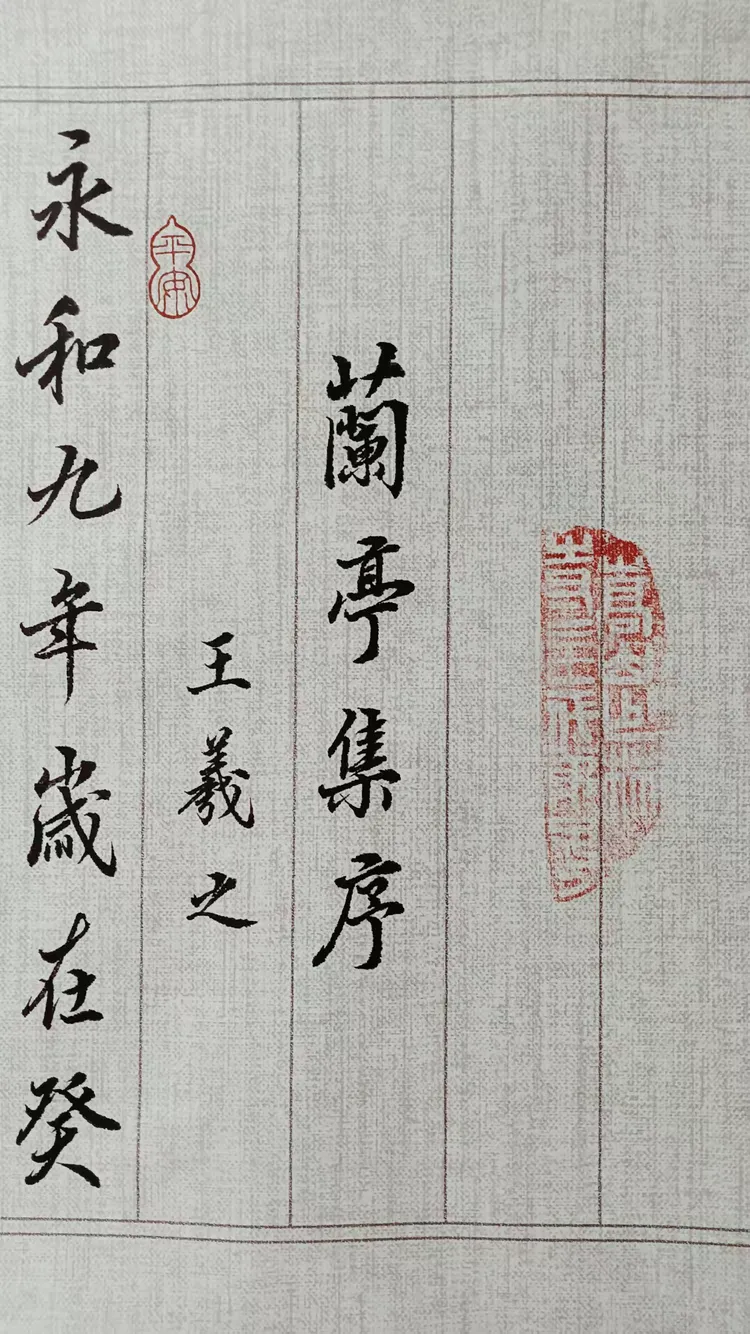 蘭亭集序
王羲之
平安
永和九年歲在癸